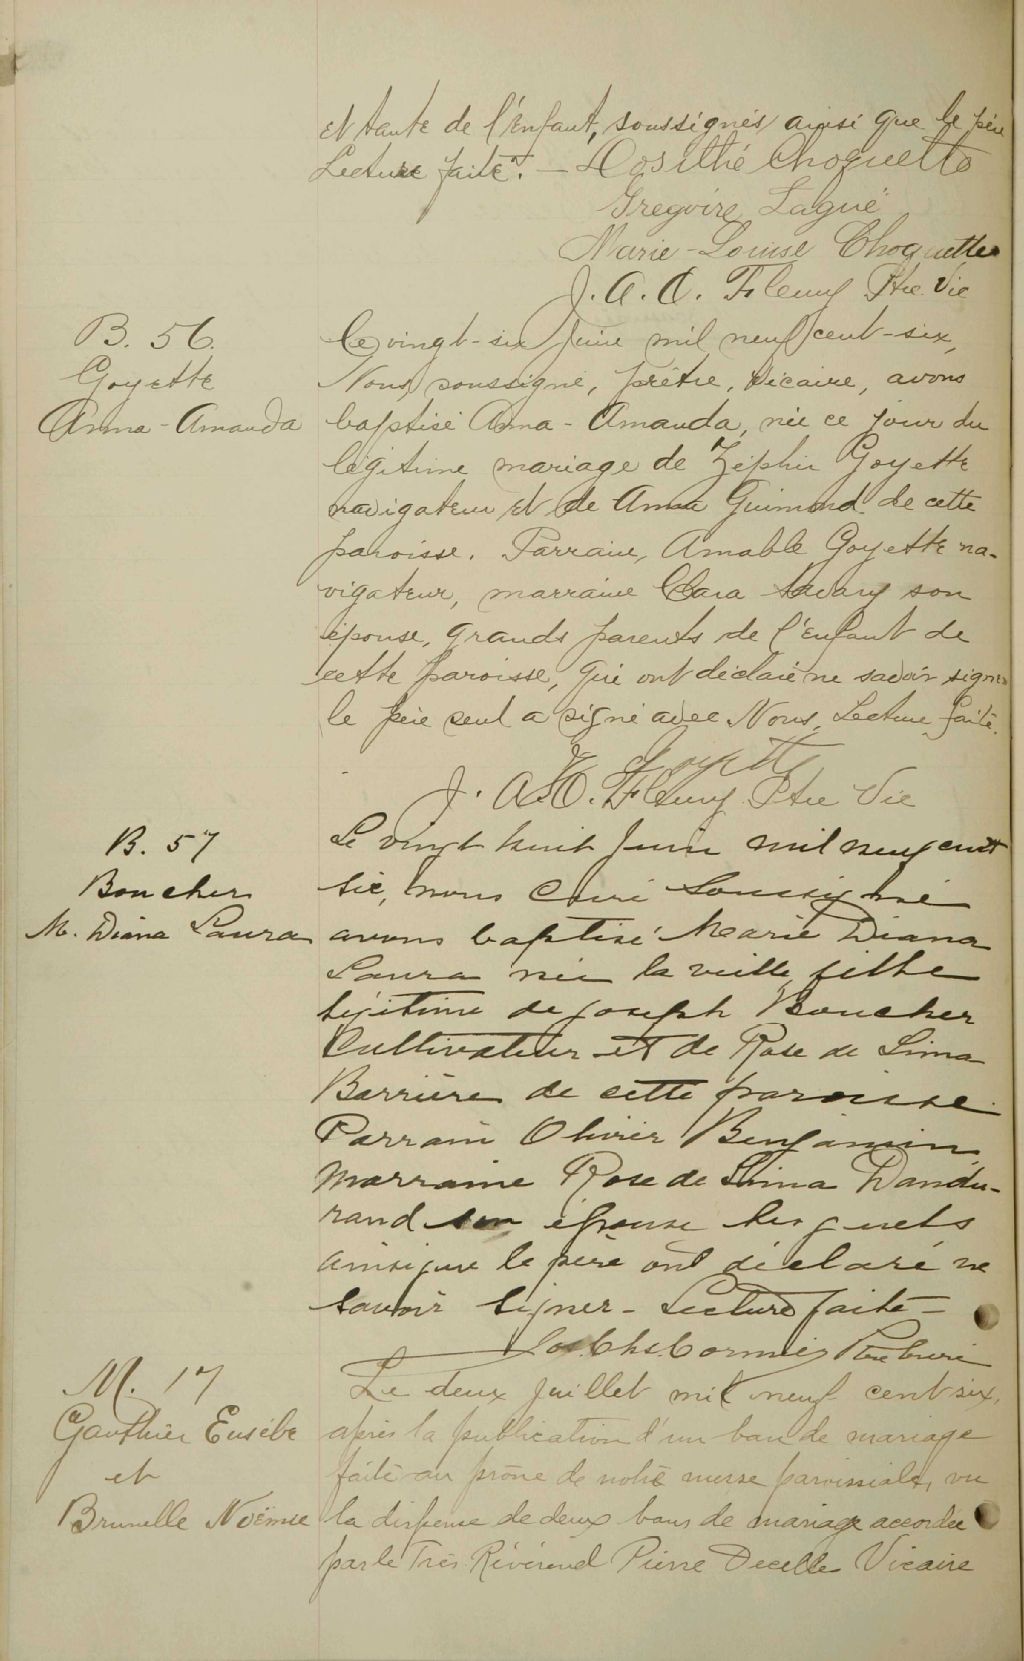 et tante de l'Enfant, soussignés ainsi que le père
Lecture faite. — Dosithé Choquette
Gregoire Lague
Marie-Louise Choquette
J. A. O. Fleury Ptre Vic
B. 56.
Goyette
Anna-Amanda
Le vingt-six Juin mil neuf cent-six,
Nous, soussigné, prêtre, vicaire, avons
baptisé Anna-Amanda, née ce jour du
légitime mariage de Zéphir Goyette
navigateur et de Anna Guimond de cette
paroisse. Parrain, Amable Goyette na-
vigateur, marraine Clara Savary son
épouse, grands parents de l'Enfant de
cette paroisse, qui ont déclaré ne savoir signer
le père seul a signé avec Nous, Lecture faite.
Z Goyette
J. A. O. Fleury Ptre Vic
B. 57
Boucher
M. Diana Laura
Le vingt huit Juin mil neuf cent
six, nous Curé soussigné
avons baptisé Marie Diana
Laura née la veille, fille
légitime de Joseph Boucher
Cultivateur et de Rose de Lima
Barrière de cette paroisse.
Parrain Olivier Benjamin,
marraine Rose de Lima Dandu-
rand son épouse lesquels
ainsique le père ont déclaré ne
savoir signer - Lecture faite -
Jos. Chs. Cormier Ptre Curé
M. 17
Gauthier Eusèbe
et
Brunelle Noëmie
Le deux Juillet mil neuf cent six,
après la publication d'un ban de mariage
faite au prône de notre messe paroissiale, vu
la dispense de deux bans de mariage accordée
par le Très Révérend Pierre Decelle Vicaire